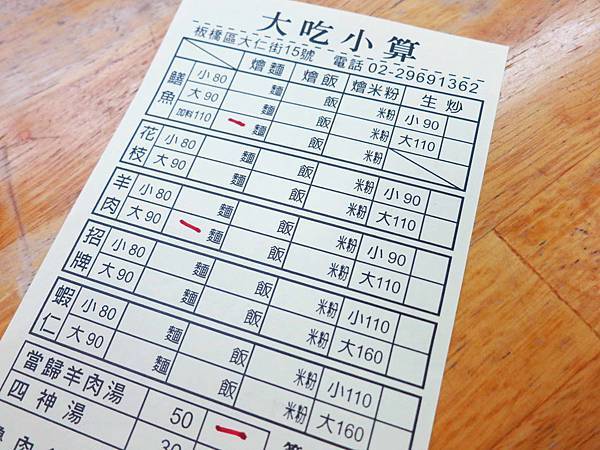 大吃小算
板橋區大仁街15號 電話 02-29691362
燴麵 燴飯 燴米粉 生炒
鱔魚 小 80 麵 飯 米粉 小 90
大 90 麵 飯 米粉 大110
加料110 一 麵 飯 米粉
花枝 小 80 麵 飯 米粉 小 90
大 90 麵 飯 米粉 大110
羊肉 小 80 麵 飯 米粉 小 90
大 90 一 麵 飯 米粉 大110
招牌 小 80 麵 飯 米粉 小110
大 90 麵 飯 米粉 大160
蝦仁 小 80 麵 飯 米粉 小110
大 90 麵 飯 米粉 大160
當歸羊肉湯 50 一
四神湯 30